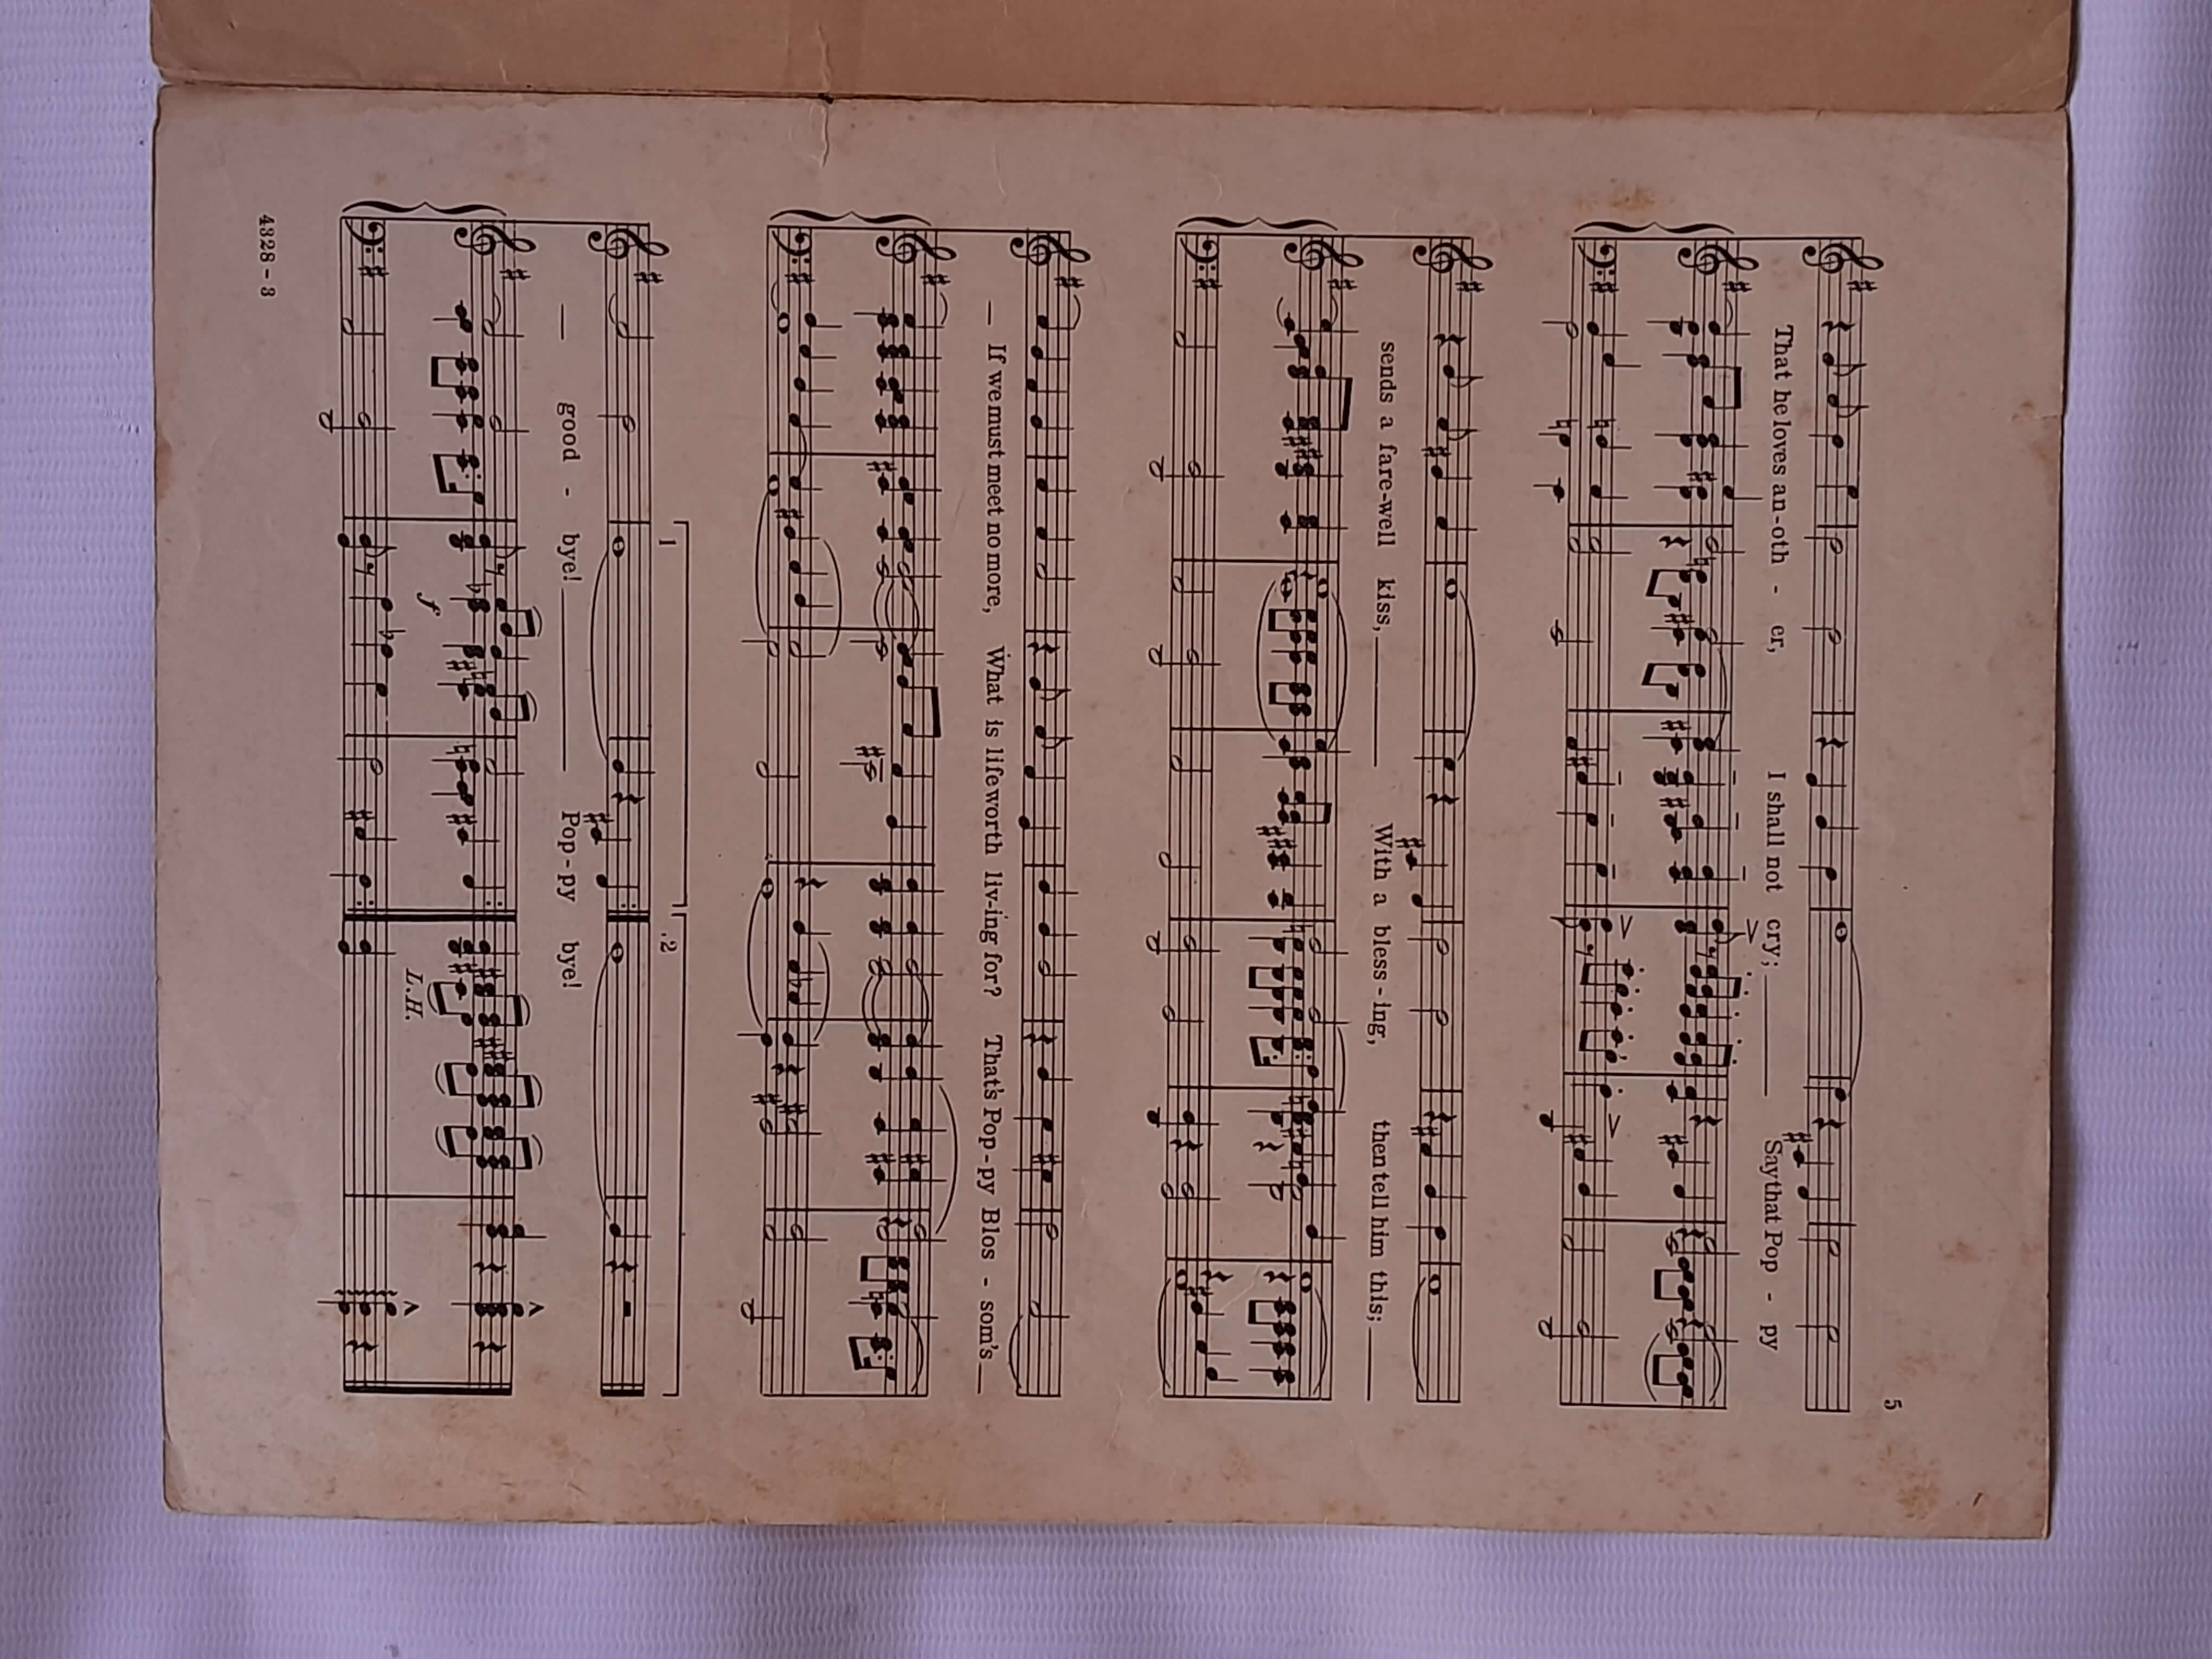 5
That he loves an-oth - er, I shall not cry; Say that Pop - py
sends a fare-well kiss, With a bless - ing, then tell him this;
If we must meet no more, What is life worth liv-ing for? That's Pop-py Blos - som's
1 2
good - bye! Pop-py bye!
f L.H.
4328 - 3